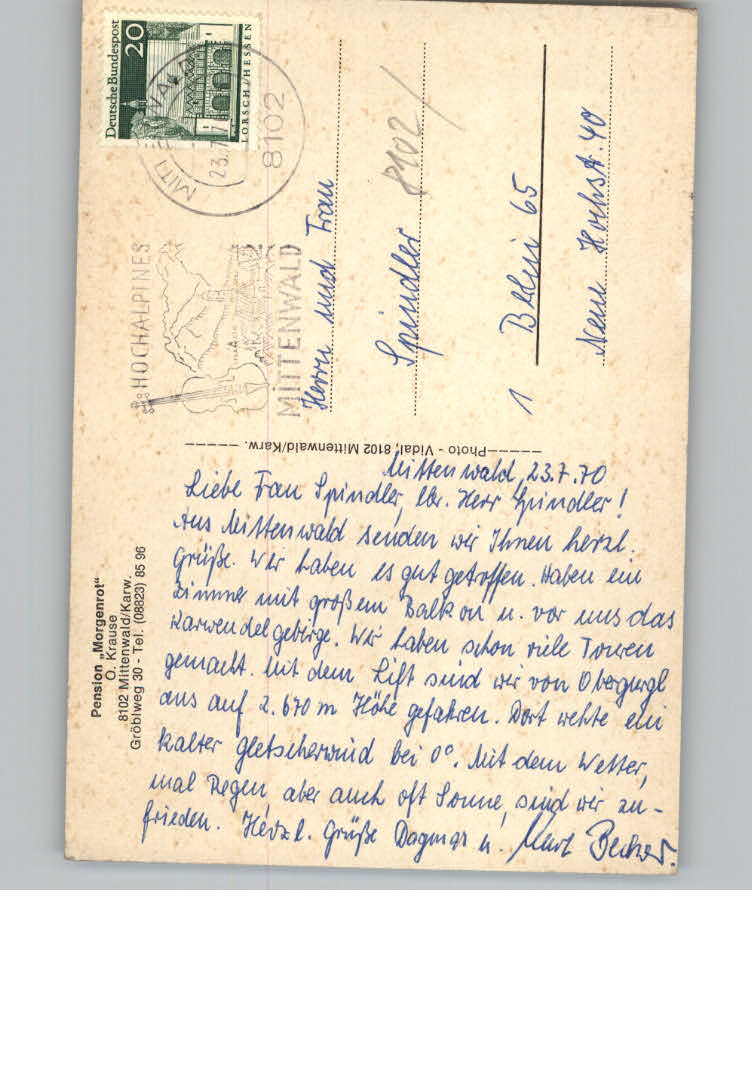 Pension „Morgenrot"
O. Krause
8102 Mittenwald/Karw.
Gröblweg 30 - Tel. (08823) 85 96
Mittenwald, 23.7.70
Liebe Frau Spindler, lbr. Herr Spindler!
Aus Mittenwald senden wir Ihnen herzl.
Grüße. Wir haben es gut getroffen. Haben ein
Zimmer mit großem Balkon u. vor uns das
Karwendelgebirge. Wir haben schon viele Touren
gemacht. Mit dem Lift sind wir von Obergurgl
aus auf 2.670 m Höhe gefahren. Dort wehte ein
kalter Gletscherwind bei 0°. Mit dem Wetter,
mal Regen, aber auch oft Sonne, sind wir zu-
frieden. Herzl. Grüße Dagmar u. Kurt Becker.
Photo - Vidal, 8102 Mittenwald/Karw.
Deutsche Bundespost
20
LORSCH/HESSEN
MITTENWALD
23.7.7
8102
HOCHALPINES
MITTENWALD
Herrn und Frau
Spindler
8102/
1 Berlin 65
Neue Hochst. 40